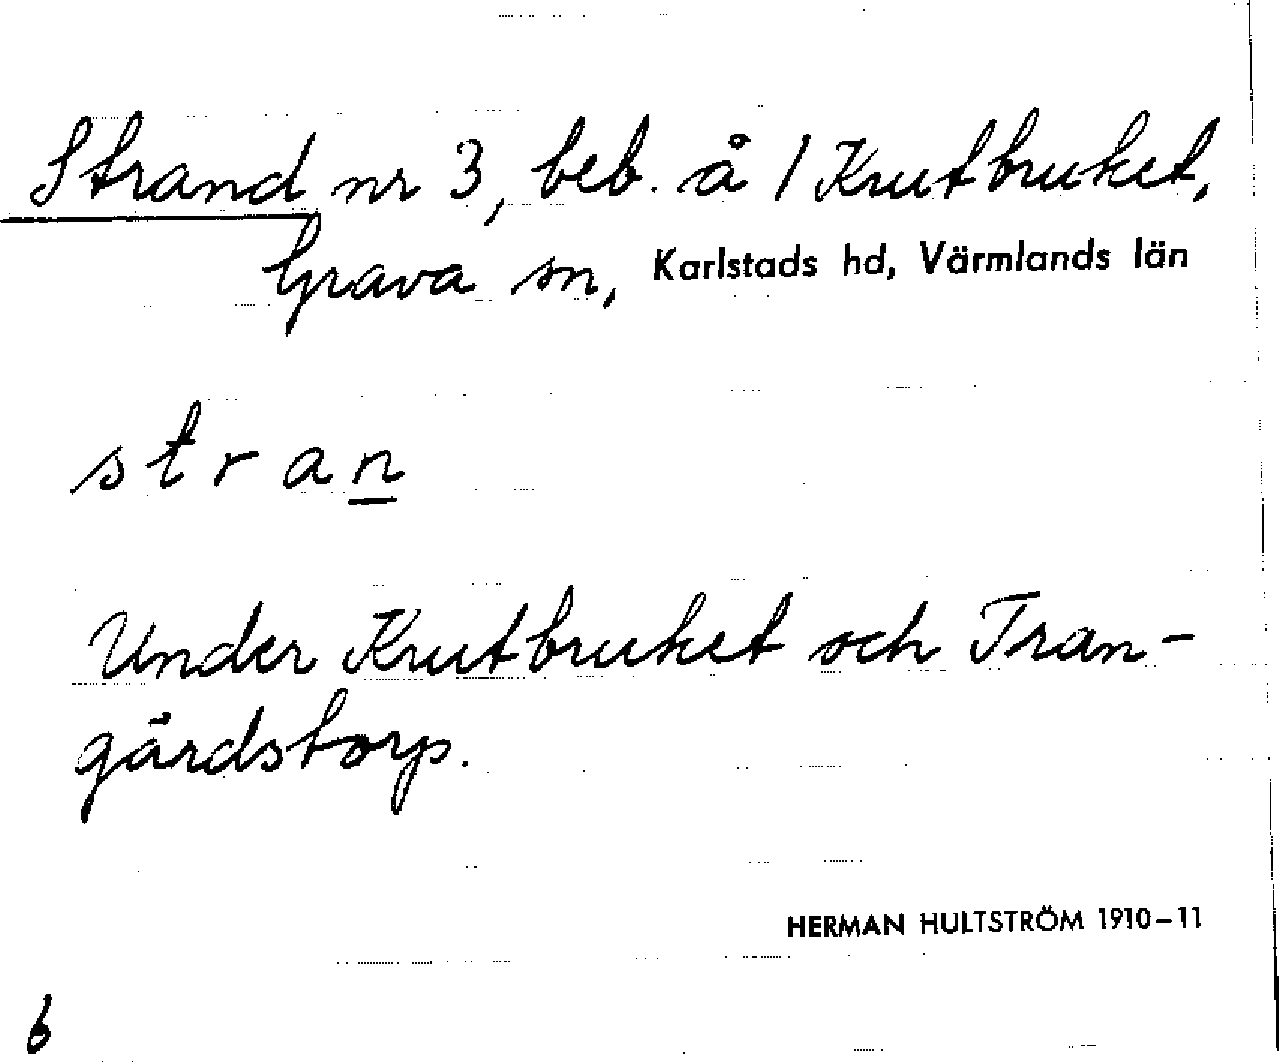 Strand nr 3, beb. å 1 Krutbruket,
Grava sn, Karlstads hd, Värmlands län
stran
Under Krutbruket och Tran-
gärdstorp.
HERMAN HULTSTRÖM 1910-11
6